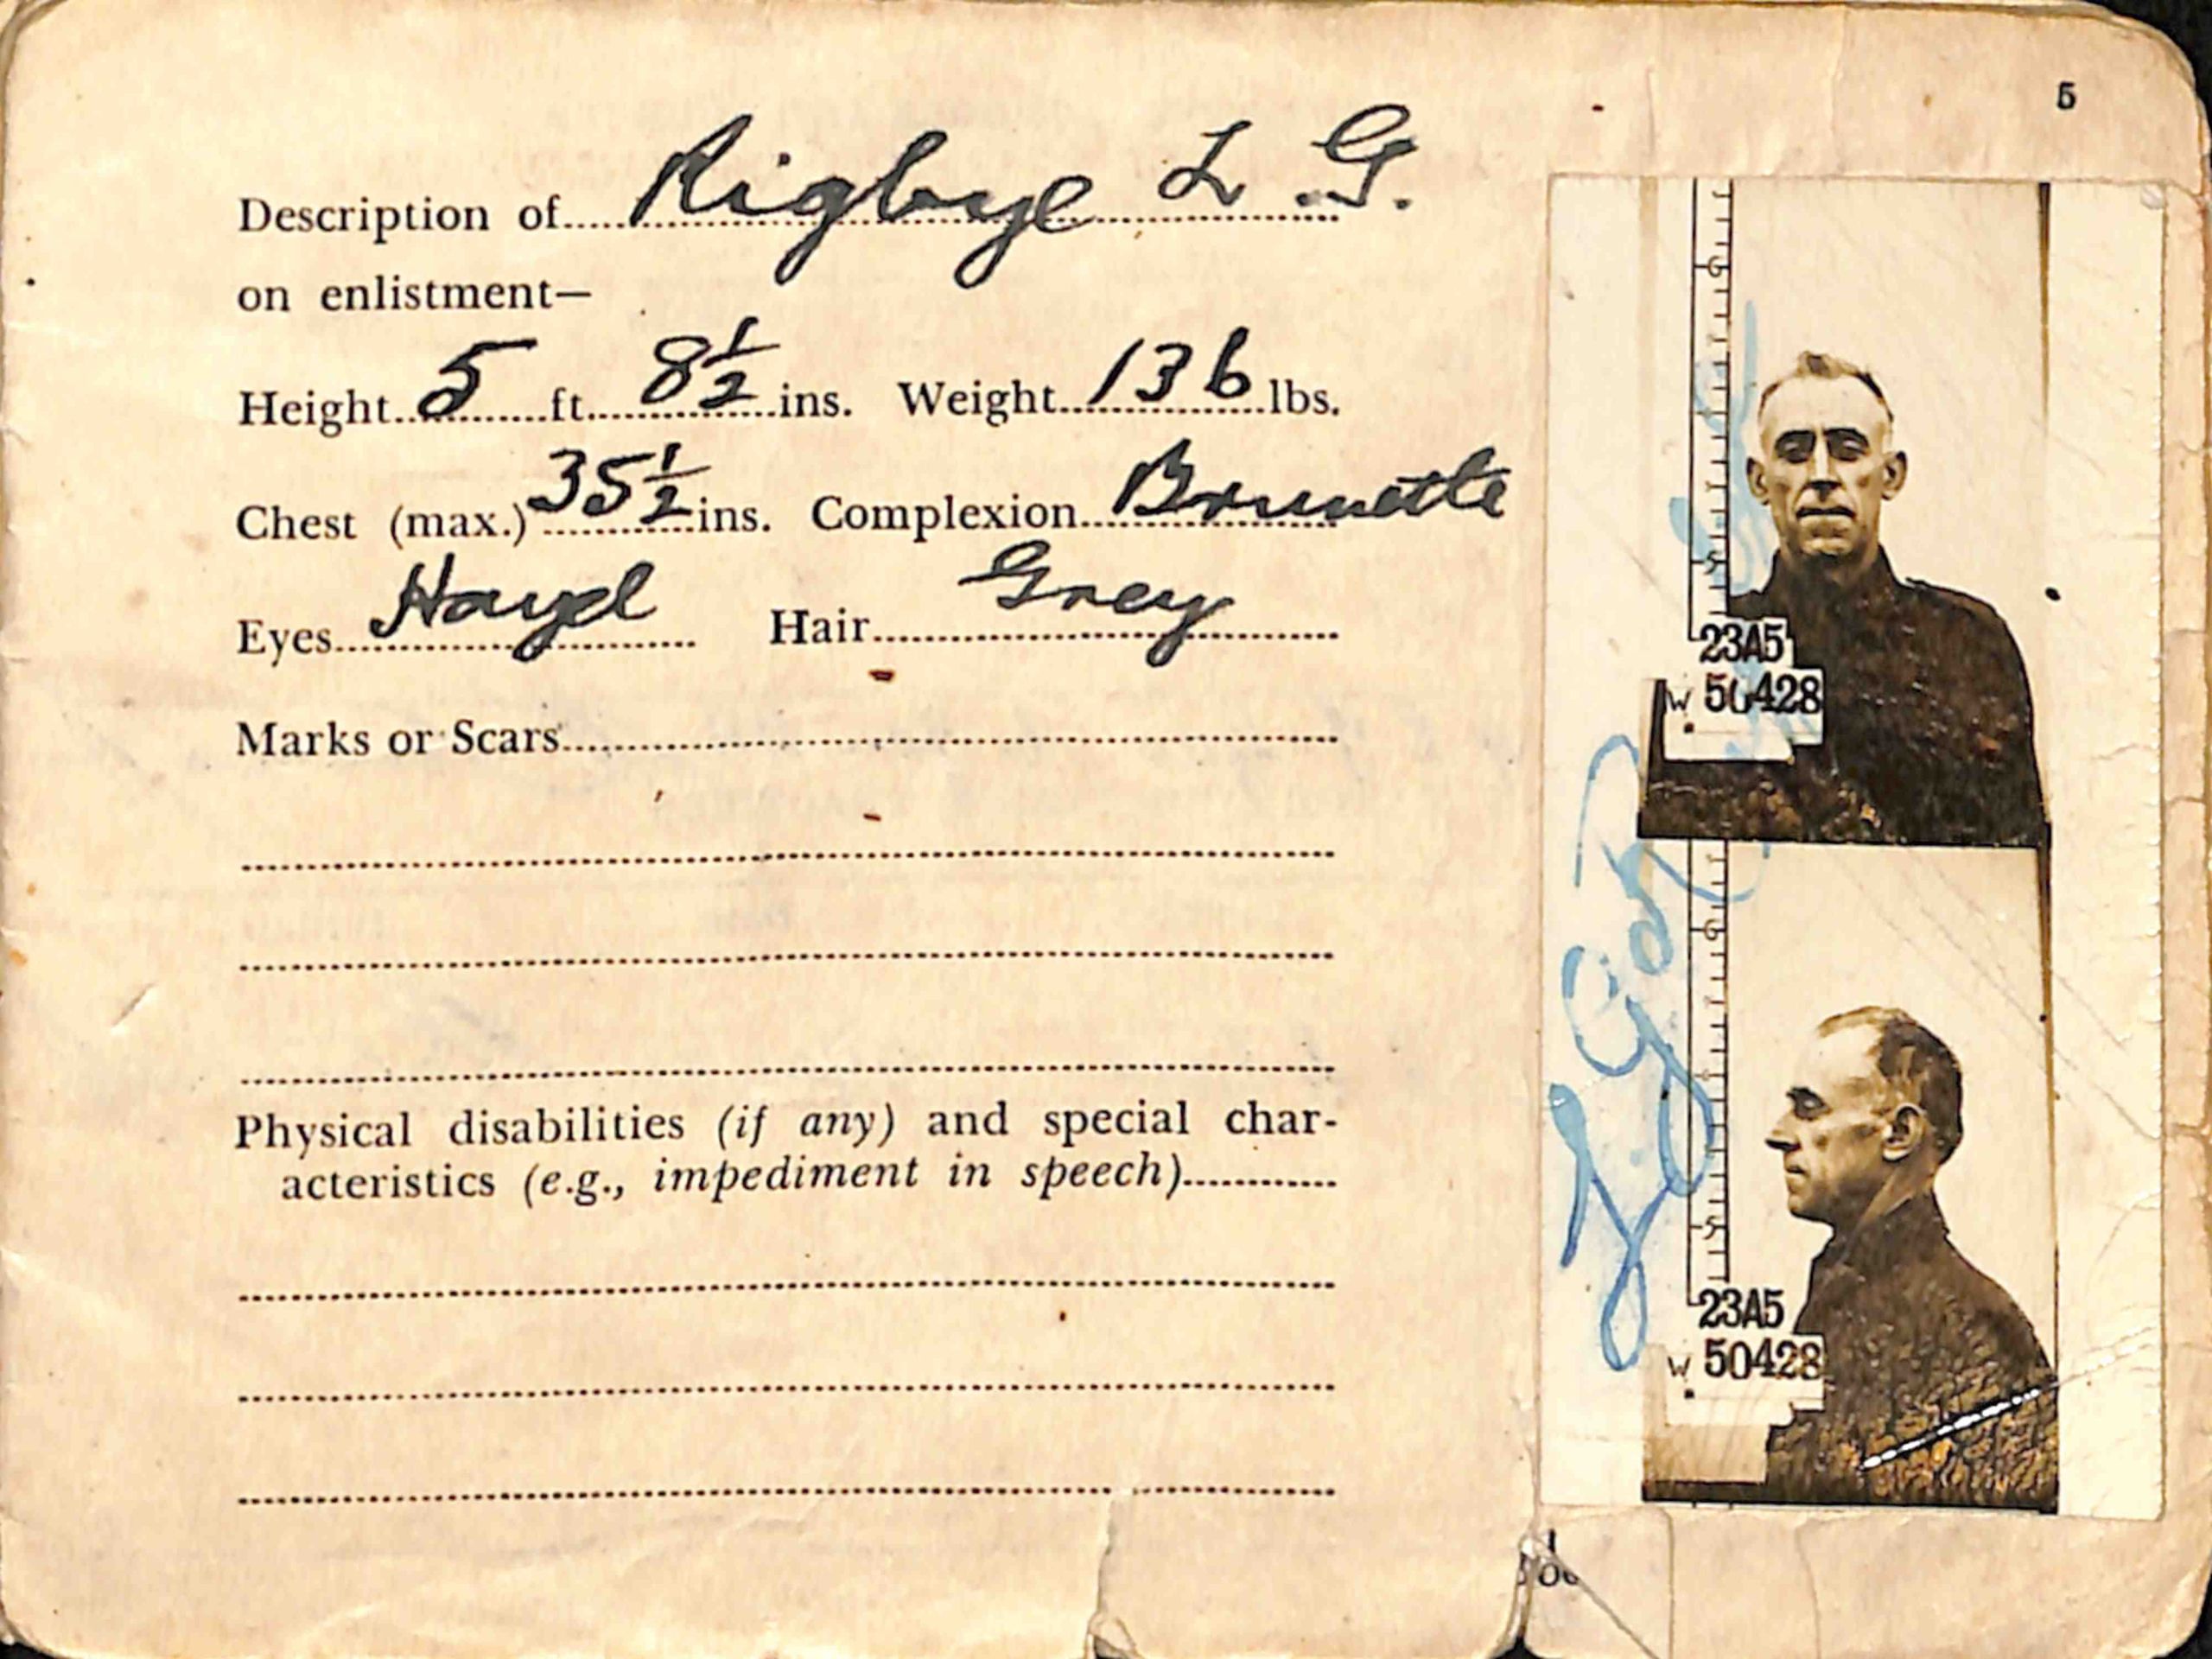 5
Description of Rigbye L. G.
on enlistment—
Height 5 ft. 8½ ins. Weight 136 lbs.
Chest (max.) 35½ ins. Complexion Brunette
Eyes Hazel Hair Grey
Marks or Scars
Physical disabilities (if any) and special char-
acteristics (e.g., impediment in speech)
6
5
23A5
W 50428
6
5
23A5
W 50428